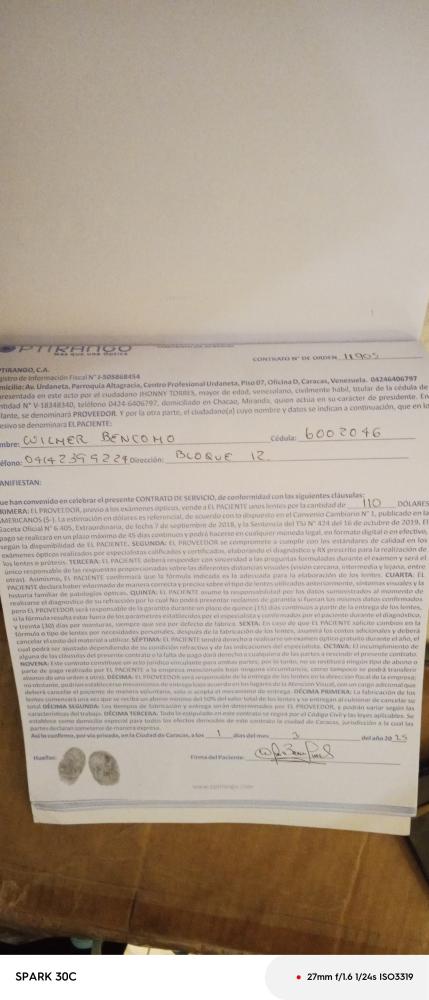 OPTIRANGO
MÁS QUE UNA ÓPTICA
CONTRATO Nº DE ORDEN 11905
PTIRANGO, C.A.
gistro de Información Fiscal N° J-505868454
micilio: Av. Urdaneta, Parroquia Altagracia, Centro Profesional Urdaneta, Piso 07, Oficina D, Caracas, Venezuela. 04246406797
presentada en este acto por el ciudadano JHONNY TORRES, mayor de edad, venezolano, civilmente hábil, titular de la cédula de
ntidad N° V-18348340, teléfono 0424-6406797, domiciliado en Chacao, Miranda, quien actúa en su carácter de presidente. En
lante, se denominará PROVEEDOR. Y por la otra parte, el ciudadano(a) cuyo nombre y datos se indican a continuación, que en lo
esivo se denominará EL PACIENTE:
mbre: WILMER BENCOMO Cédula: 6002046
éfono: 04142399224 Dirección: BLOQUE 12.
ANIFIESTAN:
ue han convenido en celebrar el presente CONTRATO DE SERVICIO, de conformidad con las siguientes cláusulas:
PRIMERA: EL PROVEEDOR, previo a los exámenes ópticos, vende a EL PACIENTE unos lentes por la cantidad de 110 DÓLARES
AMERICANOS ($-). La estimación en dólares es referencial, de acuerdo con lo dispuesto en el Convenio Cambiario N° 1, publicado en la
Gaceta Oficial N° 6.405, Extraordinaria, de fecha 7 de septiembre de 2018, y la Sentencia del TSJ N° 424 del 16 de octubre de 2019. El
pago se realizará en un plazo máximo de 45 días continuos y podrá hacerse en cualquier moneda legal, en formato digital o en efectivo,
según la disponibilidad de EL PACIENTE. SEGUNDA: EL PROVEEDOR se compromete a cumplir con los estándares de calidad en los
exámenes ópticos realizados por especialistas calificados y certificados, elaborando el diagnóstico y RX prescrito para la realización de
los lentes o prótesis. TERCERA: EL PACIENTE deberá responder con sinceridad a las preguntas formuladas durante el examen y será el
único responsable de las respuestas proporcionadas sobre las diferentes distancias visuales (visión cercana, intermedia y lejana, entre
otras). Asimismo, EL PACIENTE confirmará que la fórmula indicada es la adecuada para la elaboración de los lentes. CUARTA: EL
PACIENTE declara haber informado de manera correcta y precisa sobre el tipo de lentes utilizados anteriormente, síntomas visuales y la
historia familiar de patologías ópticas. QUINTA: EL PACIENTE asume la responsabilidad por los datos suministrados al momento de
realizarse el diagnóstico de su refracción por lo cual No podrá presentar reclamos de garantía si fueran los mismos datos confirmados
pero EL PROVEEDOR será responsable de la garantía durante un plazo de quince (15) días continuos a partir de la entrega de los lentes,
si la fórmula resulta estar fuera de los parámetros establecidos por el especialista y confirmados por el paciente durante el diagnóstico,
y treinta (30) días por monturas, siempre que sea por defecto de fábrica. SEXTA: En caso de que EL PACIENTE solicite cambios en la
fórmula o tipo de lentes por necesidades personales, después de la fabricación de los lentes, asumirá los costos adicionales y deberá
cancelar el costo del material a utilizar. SÉPTIMA: EL PACIENTE tendrá derecho a realizarse un examen óptico gratuito durante el año, el
cual podrá ser ajustado dependiendo de su condición refractiva y de las indicaciones del especialista. OCTAVA: El incumplimiento de
alguna de las cláusulas del presente contrato o la falta de pago dará derecho a cualquiera de las partes a rescindir el presente contrato.
NOVENA: Este contrato constituye un acto jurídico vinculante para ambas partes; por lo tanto, no se restituirá ningún tipo de abono o
parte de pago realizado por EL PACIENTE a la empresa mencionada bajo ninguna circunstancia, como tampoco se podrá transferir
abonos de una orden a otra). DÉCIMA: EL PROVEEDOR será responsable de la entrega de los lentes en la dirección fiscal de la empresa;
deberá cancelar el paciente de manera voluntaria, solo si acepta el mecanismo de entrega. DÉCIMA PRIMERA: La fabricación de los
lentes comenzará una vez que se reciba un abono mínimo del 50% del valor total de los lentes y se entregan al culminar de cancelar su
total. DÉCIMA SEGUNDA: Los tiempos de fabricación y entrega serán determinados por EL PROVEEDOR, y podrán variar según las
características del trabajo. DÉCIMA TERCERA: Todo lo estipulado en este contrato se regirá por el Código Civil y las leyes aplicables. Se
establece como domicilio especial para todos los efectos derivados de este contrato la ciudad de Caracas, jurisdicción a la cual las
partes declaran someterse de manera expresa.
Así lo confirmo, por vía privada, en la Ciudad de Caracas, a los 1 días del mes 3 del año 2025
Huellas: Firma del Paciente:
www.optirango.com
SPARK 30C
27mm f/1.6 1/24s ISO3319